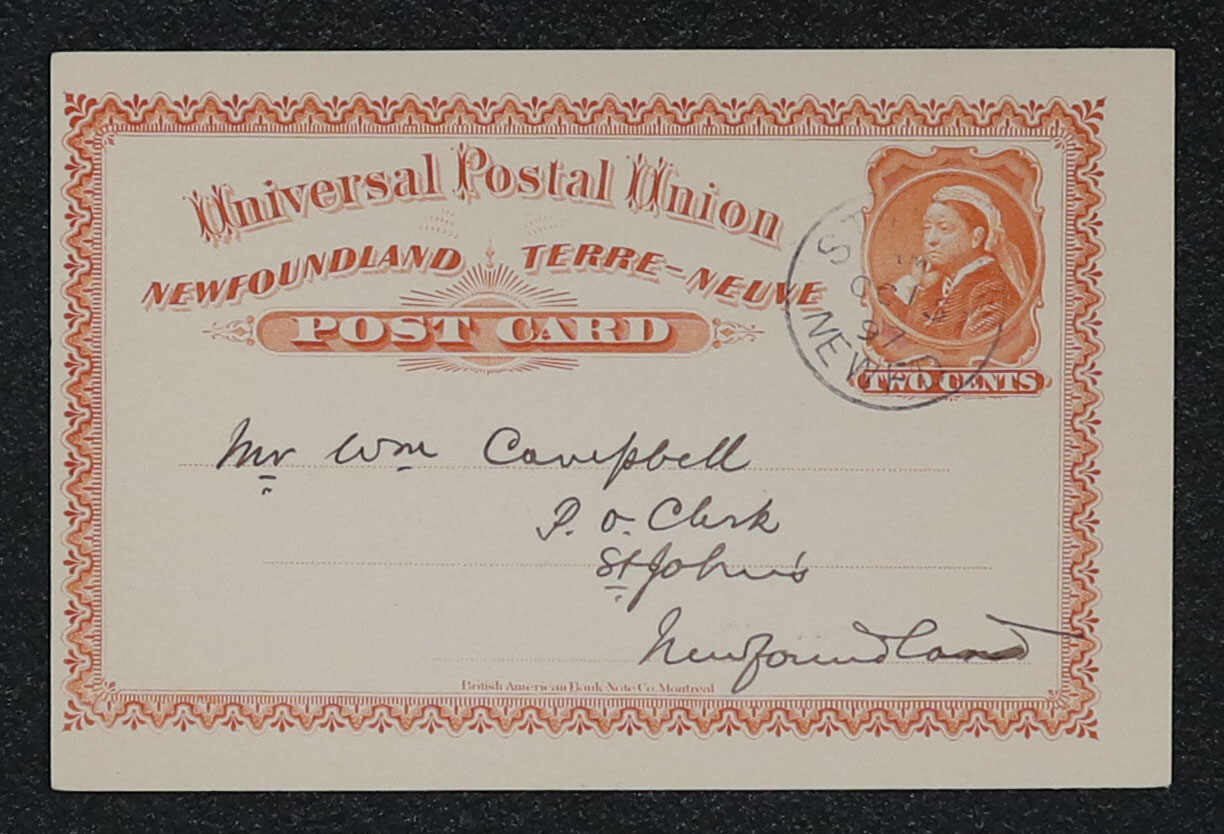 Universal Postal Union
NEWFOUNDLAND TERRE-NEUVE
POST CARD
TWO CENTS
ST
OC
97
NEWFD
Mr Wm Campbell
P. O. Clerk
St John's
Newfoundland
British American Bank Note Co. Montreal